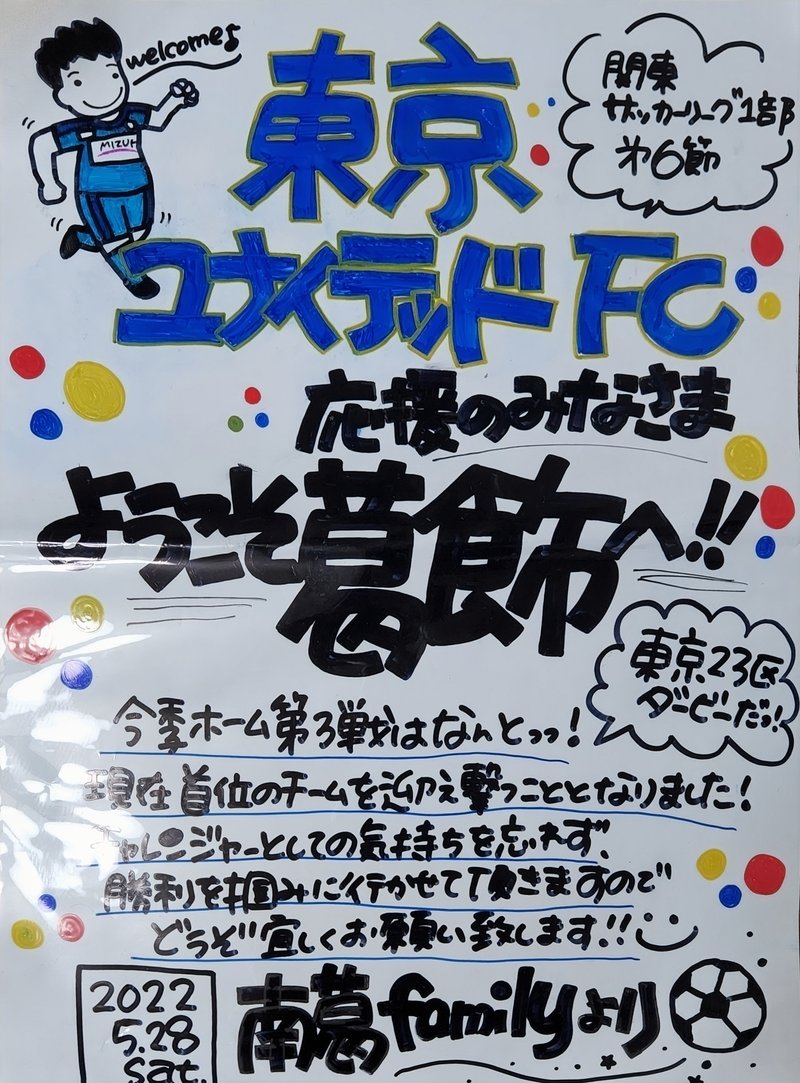 welcome♪
MIZUH
関東
サッカーリーグ1部
第6節
東京
ユナイテッドFC
応援のみなさま
ようこそ葛飾へ!!
東京23区
ダービーだっ!
今季ホーム第3戦はなんとっっ!
現在首位のチームを迎え撃つこととなりました!
チャレンジャーとしての気持ちを忘れず、
勝利を掴みに行かせて頂きますので
どうぞ宜しくお願い致します!!
2022
5.28
Sat.
南葛familyより